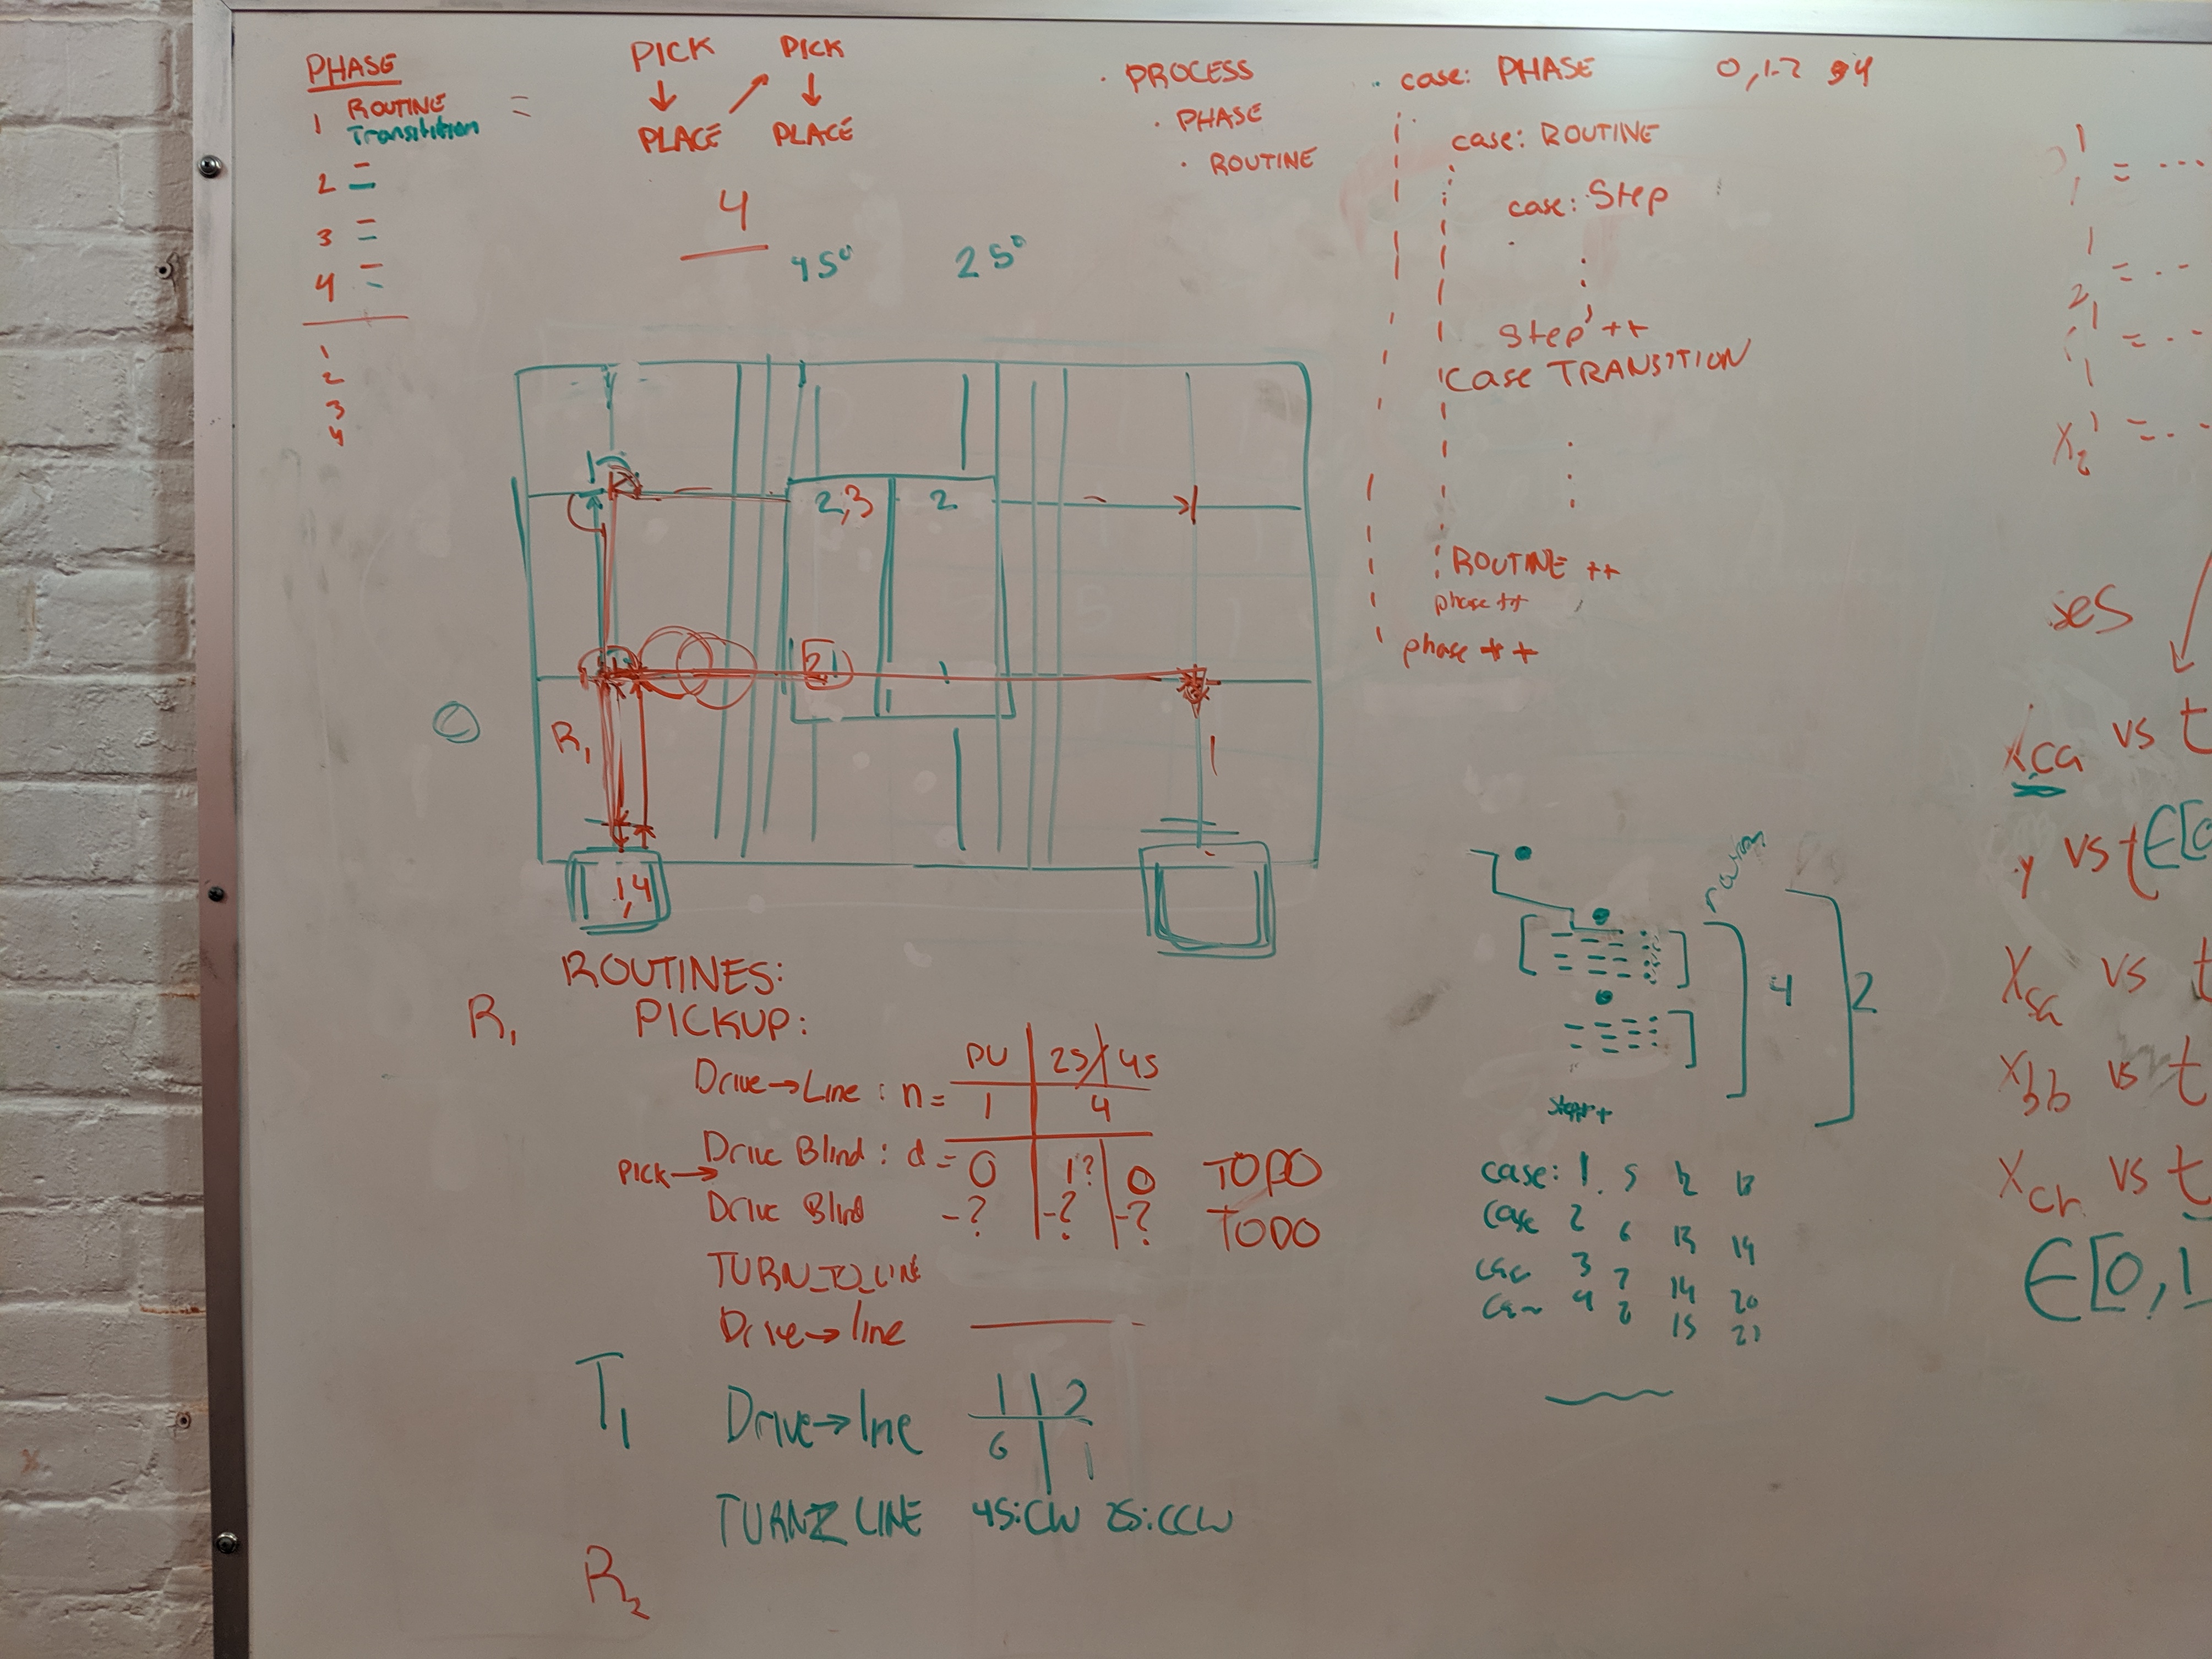 PHASE
1 ROUTINE
Transitition
=
2
3
4
1
2
3
4
PICK PICK
PLACE PLACE
4
45° 25°
· PROCESS
· PHASE
· ROUTINE
case: PHASE
case: ROUTINE
case: Step
Step ++
case TRANSITION
ROUTINE ++
phase ++
phase ++
2,3 2
R1
1,4
ROUTINES:
R1 PICKUP:
PU 25 / 45
Drive→Line : n= 1 4
Drive Blind : d= 0 1? 0 TODO
PICK→
Drive Blind -? -? -? TODO
TURN_TO_LINE
Drive→line
T1 Drive→line 1 2
6 1
TURN2 LINE 45:CW 25:CCW
R2
4 2
Step++
case: 1 5 12
case 2 6 13 19
3 7 14 20
4 8 15 21
X2 =
ses
xca vs t
y vs t
Xsa vs t
Xbb vs t
Xcr vs t
∈[0,1